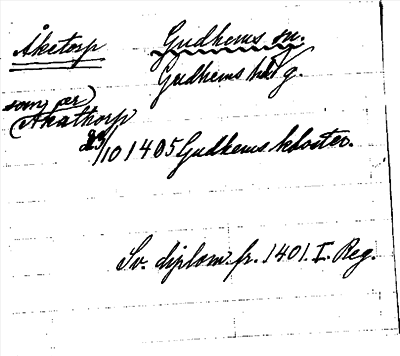 Åketorp
Gudhems sn.
Gudhems hd g.
Akathorp
23/10 1405 Gudhems kloster.
Sv. diplom. fr. 1401. I. Reg.